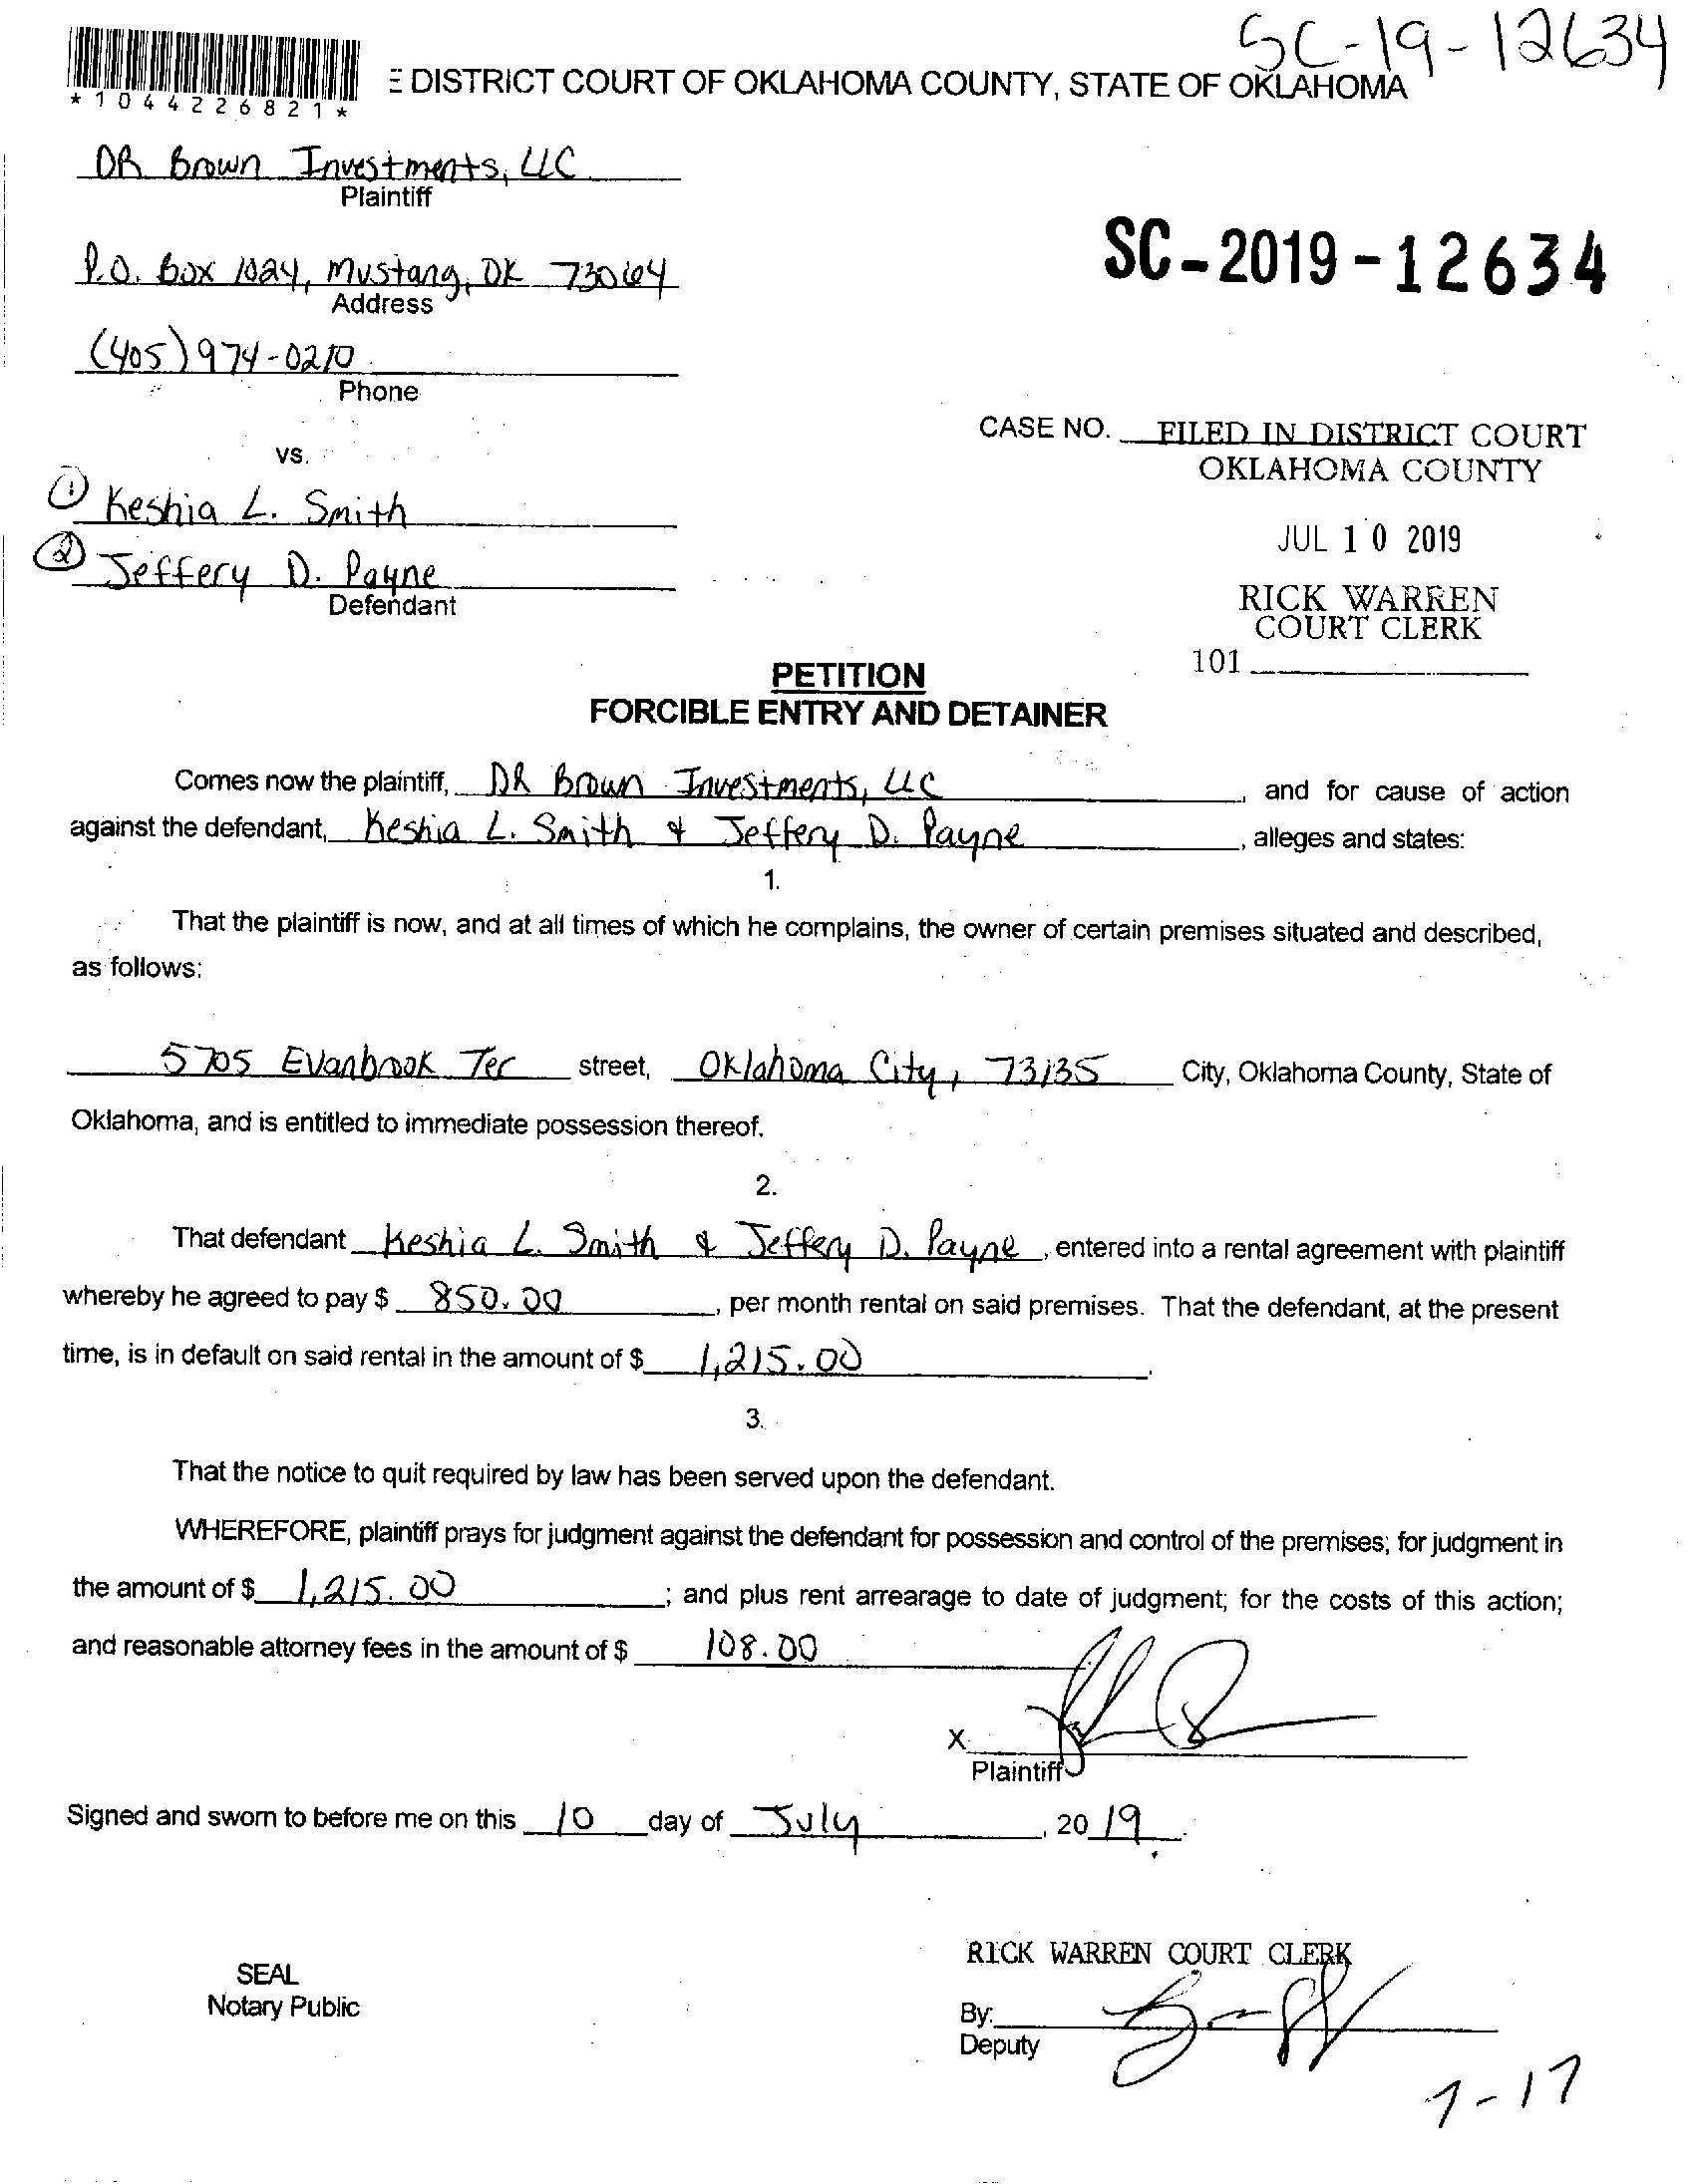 SC-19-12634
DISTRICT COURT OF OKLAHOMA COUNTY, STATE OF OKLAHOMA
*1044226821*
DR Brown Investments, LLC
Plaintiff
P.O. Box 1024, Mustang, OK 73064
Address
SC-2019-12634
(405) 974-0210
Phone
CASE NO. FILED IN DISTRICT COURT
OKLAHOMA COUNTY
vs.
① Keshia L. Smith
JUL 10 2019
② Jeffery D. Payne
Defendant
RICK WARREN
COURT CLERK
101
PETITION
FORCIBLE ENTRY AND DETAINER
Comes now the plaintiff, DR Brown Investments, LLC, and for cause of action
against the defendant, Keshia L. Smith & Jeffery D. Payne, alleges and states:
1.
That the plaintiff is now, and at all times of which he complains, the owner of certain premises situated and described,
as follows:
5705 Evanbrook Ter street, Oklahoma City, 73135 City, Oklahoma County, State of
Oklahoma, and is entitled to immediate possession thereof.
2.
That defendant Keshia L. Smith & Jeffery D. Payne, entered into a rental agreement with plaintiff
whereby he agreed to pay $ 850.00, per month rental on said premises. That the defendant, at the present
time, is in default on said rental in the amount of $ 1,215.00.
3.
That the notice to quit required by law has been served upon the defendant.
WHEREFORE, plaintiff prays for judgment against the defendant for possession and control of the premises; for judgment in
the amount of $ 1,215.00; and plus rent arrearage to date of judgment; for the costs of this action;
and reasonable attorney fees in the amount of $ 108.00
X
Plaintiff
Signed and sworn to before me on this 10 day of July, 2019.
RICK WARREN COURT CLERK
SEAL
Notary Public
By:
Deputy
7-17